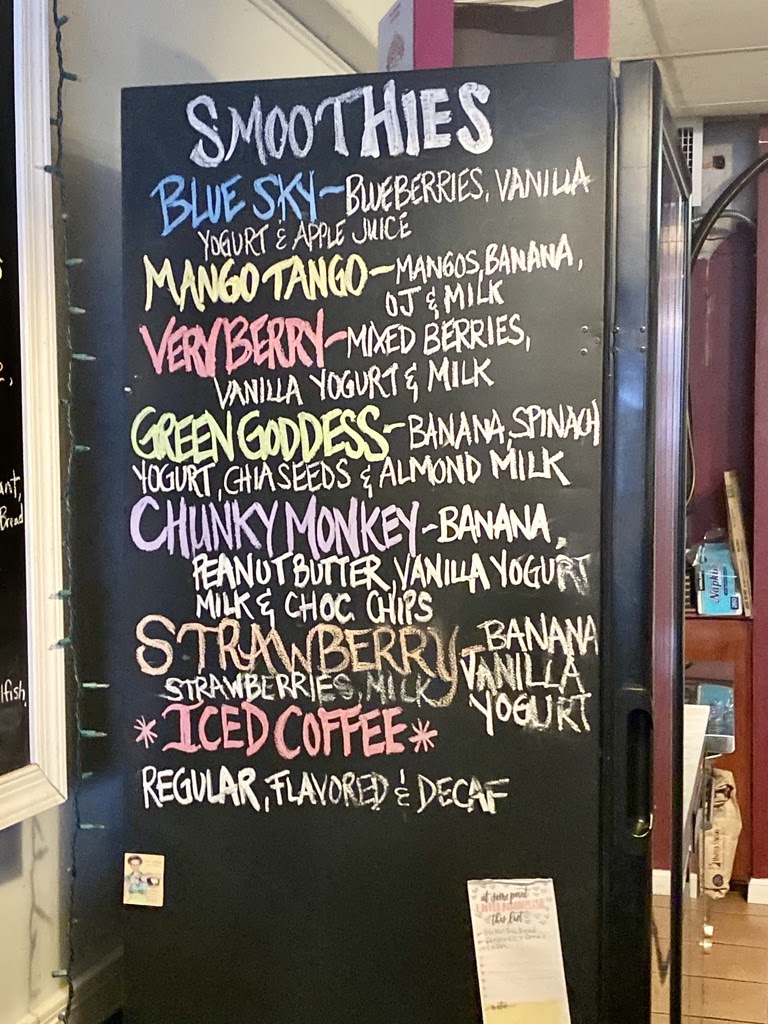 SMOOTHIES
BLUE SKY - BLUEBERRIES, VANILLA
YOGURT & APPLE JUICE
MANGO TANGO - MANGOS, BANANA,
OJ & MILK
VERY BERRY - MIXED BERRIES,
VANILLA YOGURT & MILK
GREEN GODDESS - BANANA, SPINACH
YOGURT, CHIA SEEDS & ALMOND MILK
CHUNKY MONKEY - BANANA,
PEANUT BUTTER, VANILLA YOGURT
MILK & CHOC CHIPS
STRAWBERRY - BANANA
STRAWBERRIES, MILK VANILLA
YOGURT
*ICED COFFEE*
REGULAR, FLAVORED & DECAF
at some point
this list
Bread
lfish,
Napkins